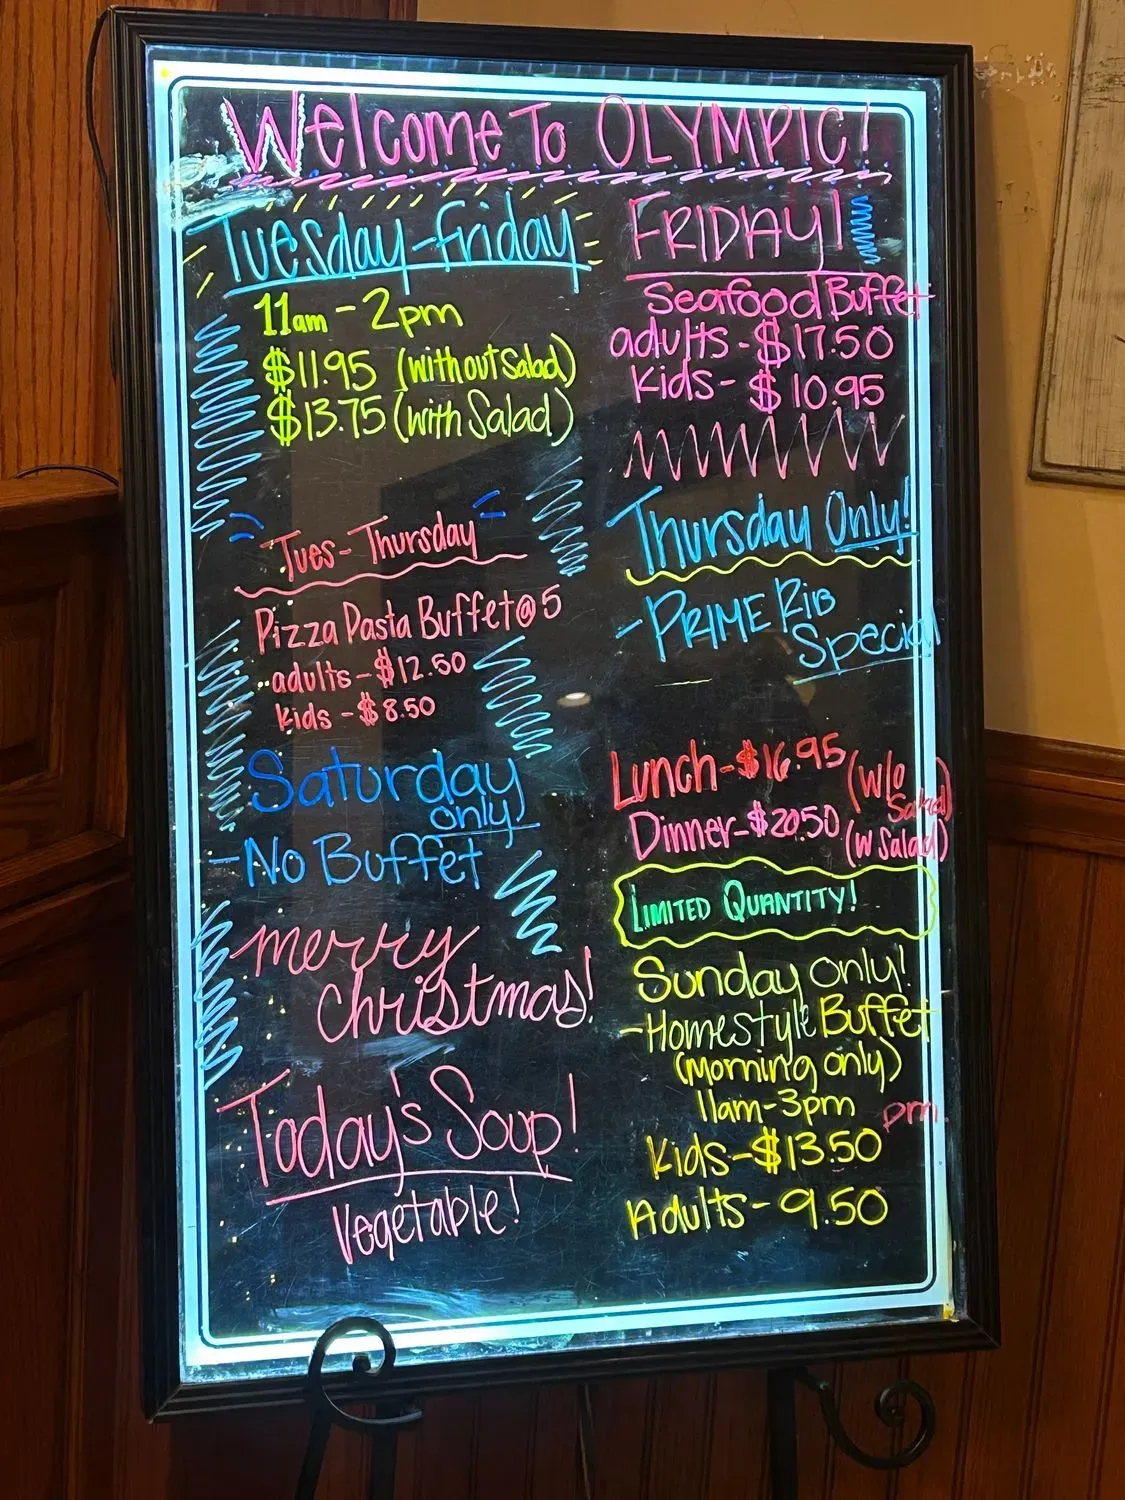 Welcome To OLYMPIC!
Tuesday-friday
11am - 2pm
$11.95 (without Salad)
$13.75 (with Salad)
Tues - Thursday
Pizza Pasta Buffet @ 5
adults - $12.50
Kids - $8.50
Saturday
only
- No Buffet
merry
christmas!
Today's Soup!
Vegetable!
FRIDAY!
Seafood Buffet
adults - $17.50
Kids - $10.95
Thursday Only!
- PRIME RIB
Special
Lunch - $16.95 (w/o
Salad)
Dinner - $20.50 (w Salad)
LIMITED QUANTITY!
Sunday only!
- Homestyle Buffet
(morning only)
11am-3pm pm.
Kids - $13.50
Adults - 9.50